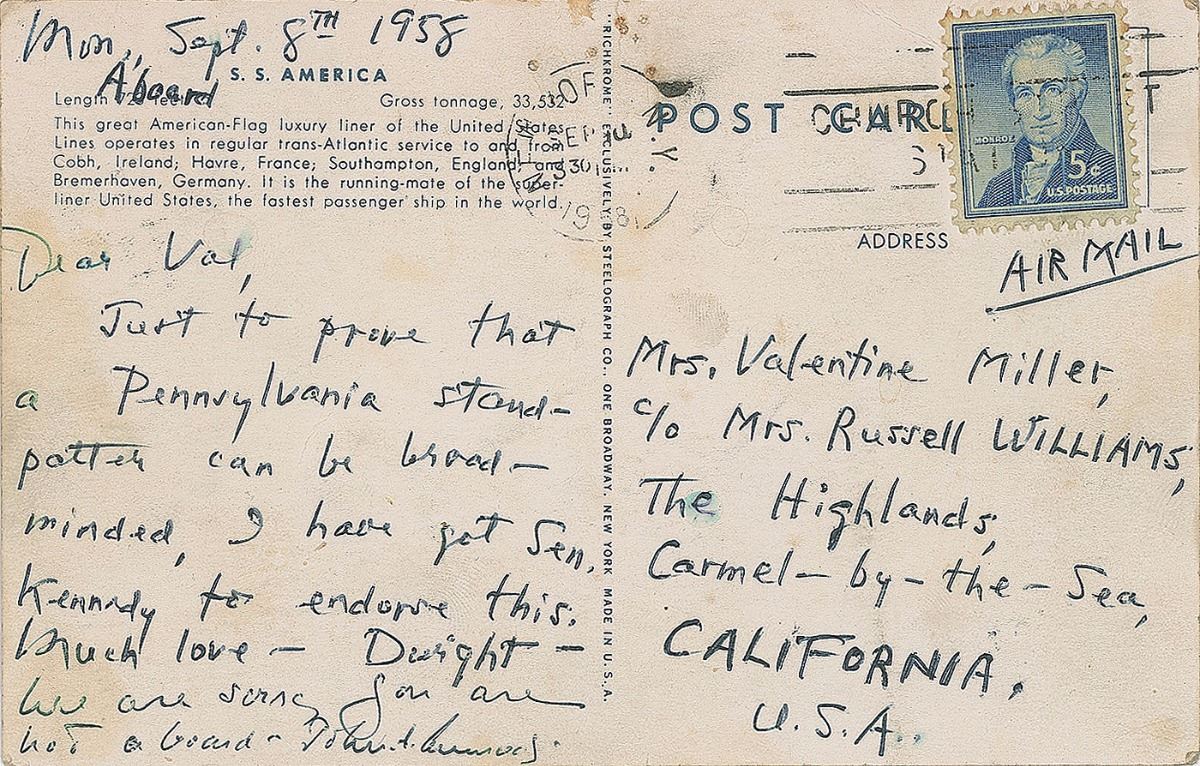 Mon, Sept. 8TH 1958
Aboard
S. S. AMERICA
Length Gross tonnage, 33,532
This great American-Flag luxury liner of the United States
Lines operates in regular trans-Atlantic service to and from
Cobh, Ireland; Havre, France; Southampton, England; and
Bremerhaven, Germany. It is the running-mate of the super-
liner United States, the fastest passenger ship in the world.
Dear Val,
Just to prove that
a Pennsylvania stand-
patter can be broad-
minded, I have got Sen.
Kennedy to endorse this.
Much love - Dwight -
We are sorry you are
not aboard - John
"RICHKROME" EXCLUSIVELY BY STEELOGRAPH CO., ONE BROADWAY, NEW YORK MADE IN U.S.A.
OF
N.Y.
SEP
330
1958
POST CARD
MONROE
5¢
U.S. POSTAGE
ADDRESS
AIR MAIL
Mrs. Valentine Miller,
c/o Mrs. Russell WILLIAMS,
The Highlands,
Carmel-by-the-Sea,
CALIFORNIA.
U.S.A.